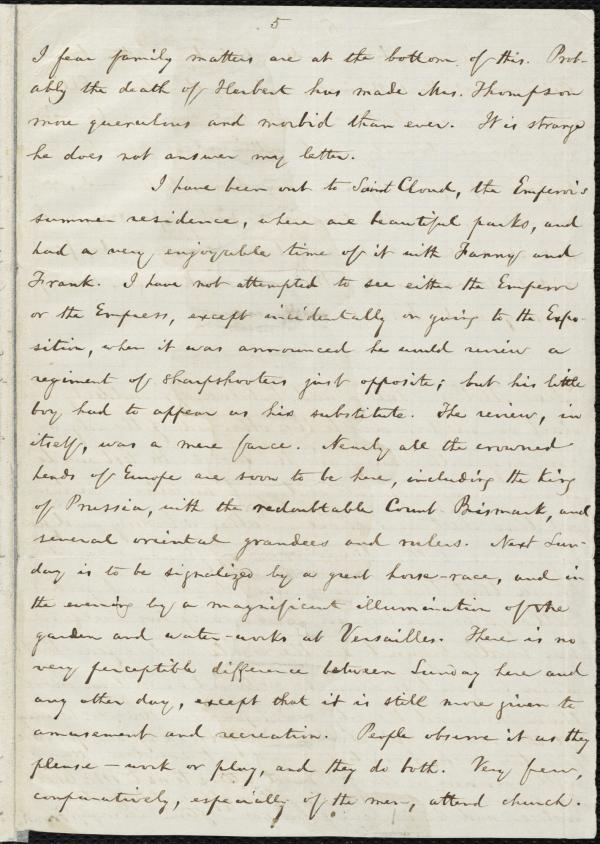 5
I fear family matters are at the bottom of this. Prob-
ably the death of Herbert has made Mrs. Thompson
more querulous and morbid than ever. It is strange
he does not answer my letter.
I have been out to Saint Cloud, the Emperor's
summer residence, where are beautiful parks, and
had a very enjoyable time of it with Fanny and
Frank. I have not attempted to see either the Emperor
or the Empress, except incidentally on going to the Expo-
sition, when it was announced he would review a
regiment of sharpshooters just opposite; but his little
boy had to appear as his substitute. The review, in
itself, was a mere farce. Nearly all the crowned
heads of Europe are soon to be here, including the King
of Prussia, with the redoubtable Count Bismark, and
several oriental grandees and rulers. Next Sun-
day is to be signalized by a great horse-race, and in
the evening by a magnificent illumination of the
garden and water-works at Versailles. There is no
very perceptible difference between Sunday here and
any other day, except that it is still more given to
amusement and recreation. People observe it as they
please — work or play, and they do both. Very few,
comparatively, especially of the men, attend church.